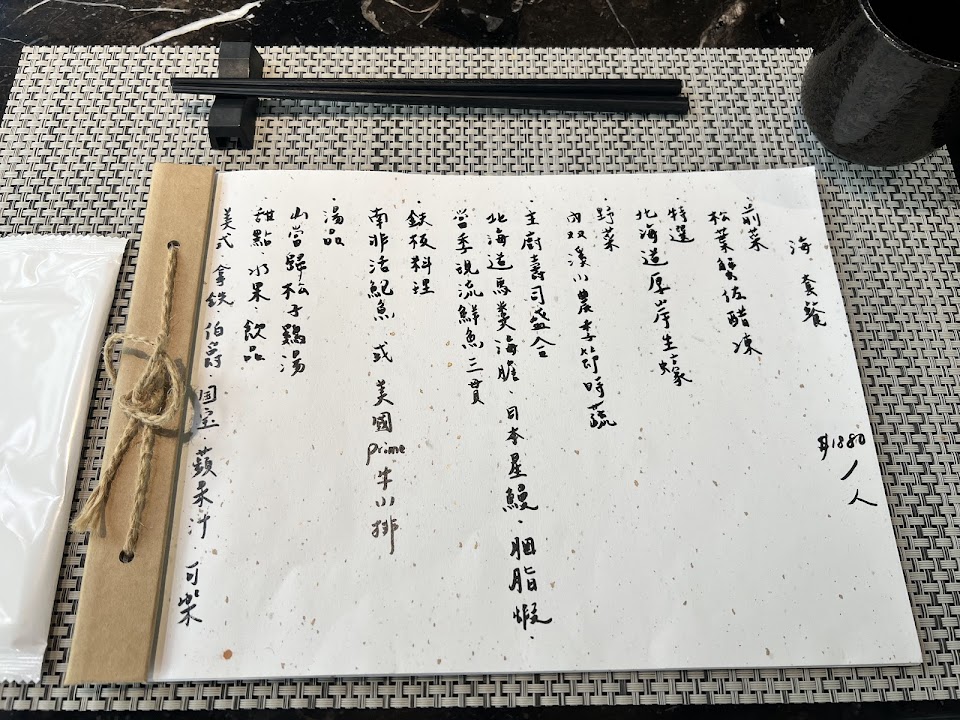 海 套餐
$1880/人
前菜
松葉蟹佐醋凍
特選
北海道厚岸生蠔
野菜
內双溪小農季節時蔬
·主廚壽司盛合
北海道馬糞海膽、日本星鰻、胭脂蝦、
當季現流鮮魚三貫
·鉄板料理
南非活鮑魚 或 美國prime牛小排
·湯品
山當歸松子鷄湯
甜點、水果、飲品
美式、拿鉄、伯爵、国宝、蘋果汁、可樂